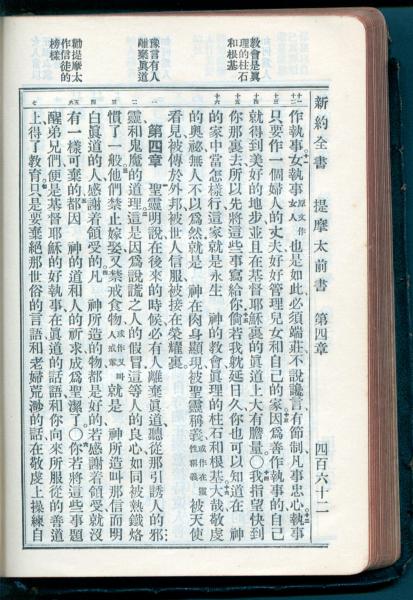 新約全書　提摩太前書　第四章　四百六十二
教會是眞
理的柱石
和根基
豫言有人
離棄眞道
勸提摩太
作信徒的
榜樣
作執事女執事原文作女人也是如此必須端莊不說讒言有節制凡事忠心執事
只要作一個婦人的丈夫好好管理兒女和自己的家因爲善作執事的自己
就得到美好的地步並且在基督耶穌裏的眞道上大有膽量〇我指望快到
你那裏去所以先將這些事寫給你倘若我躭延日久你也可以知道在　神
的家中當怎樣行這家就是永生　神的教會眞理的柱石和根基大哉敬虔
的奧祕無人不以爲然就是　神在肉身顯現被聖靈稱義或作在靈性稱義被天使
看見被傳於外邦被世人信服被接在榮耀裏
第四章　聖靈明說在後來的時候必有人離棄眞道聽從那引誘人的邪
靈和鬼魔的道理這是因爲說謊之人的假冒這等人的良心如同被熱鐵烙
慣了一般他們禁止嫁娶又禁戒食物或作又叫人戒葷就是　神所造叫那信而明
白眞道的人感謝着領受的凡　神所造的物都是好的若感謝着領受就沒
有一樣可棄的都因　神的道和人的祈求成爲聖潔了〇你若將這些事題
醒弟兄們便是基督耶穌的好執事在眞道的話語和你向來所服從的善道
上得了教育只是要棄絕那世俗的言語和老婦荒渺的話在敬虔上操練自